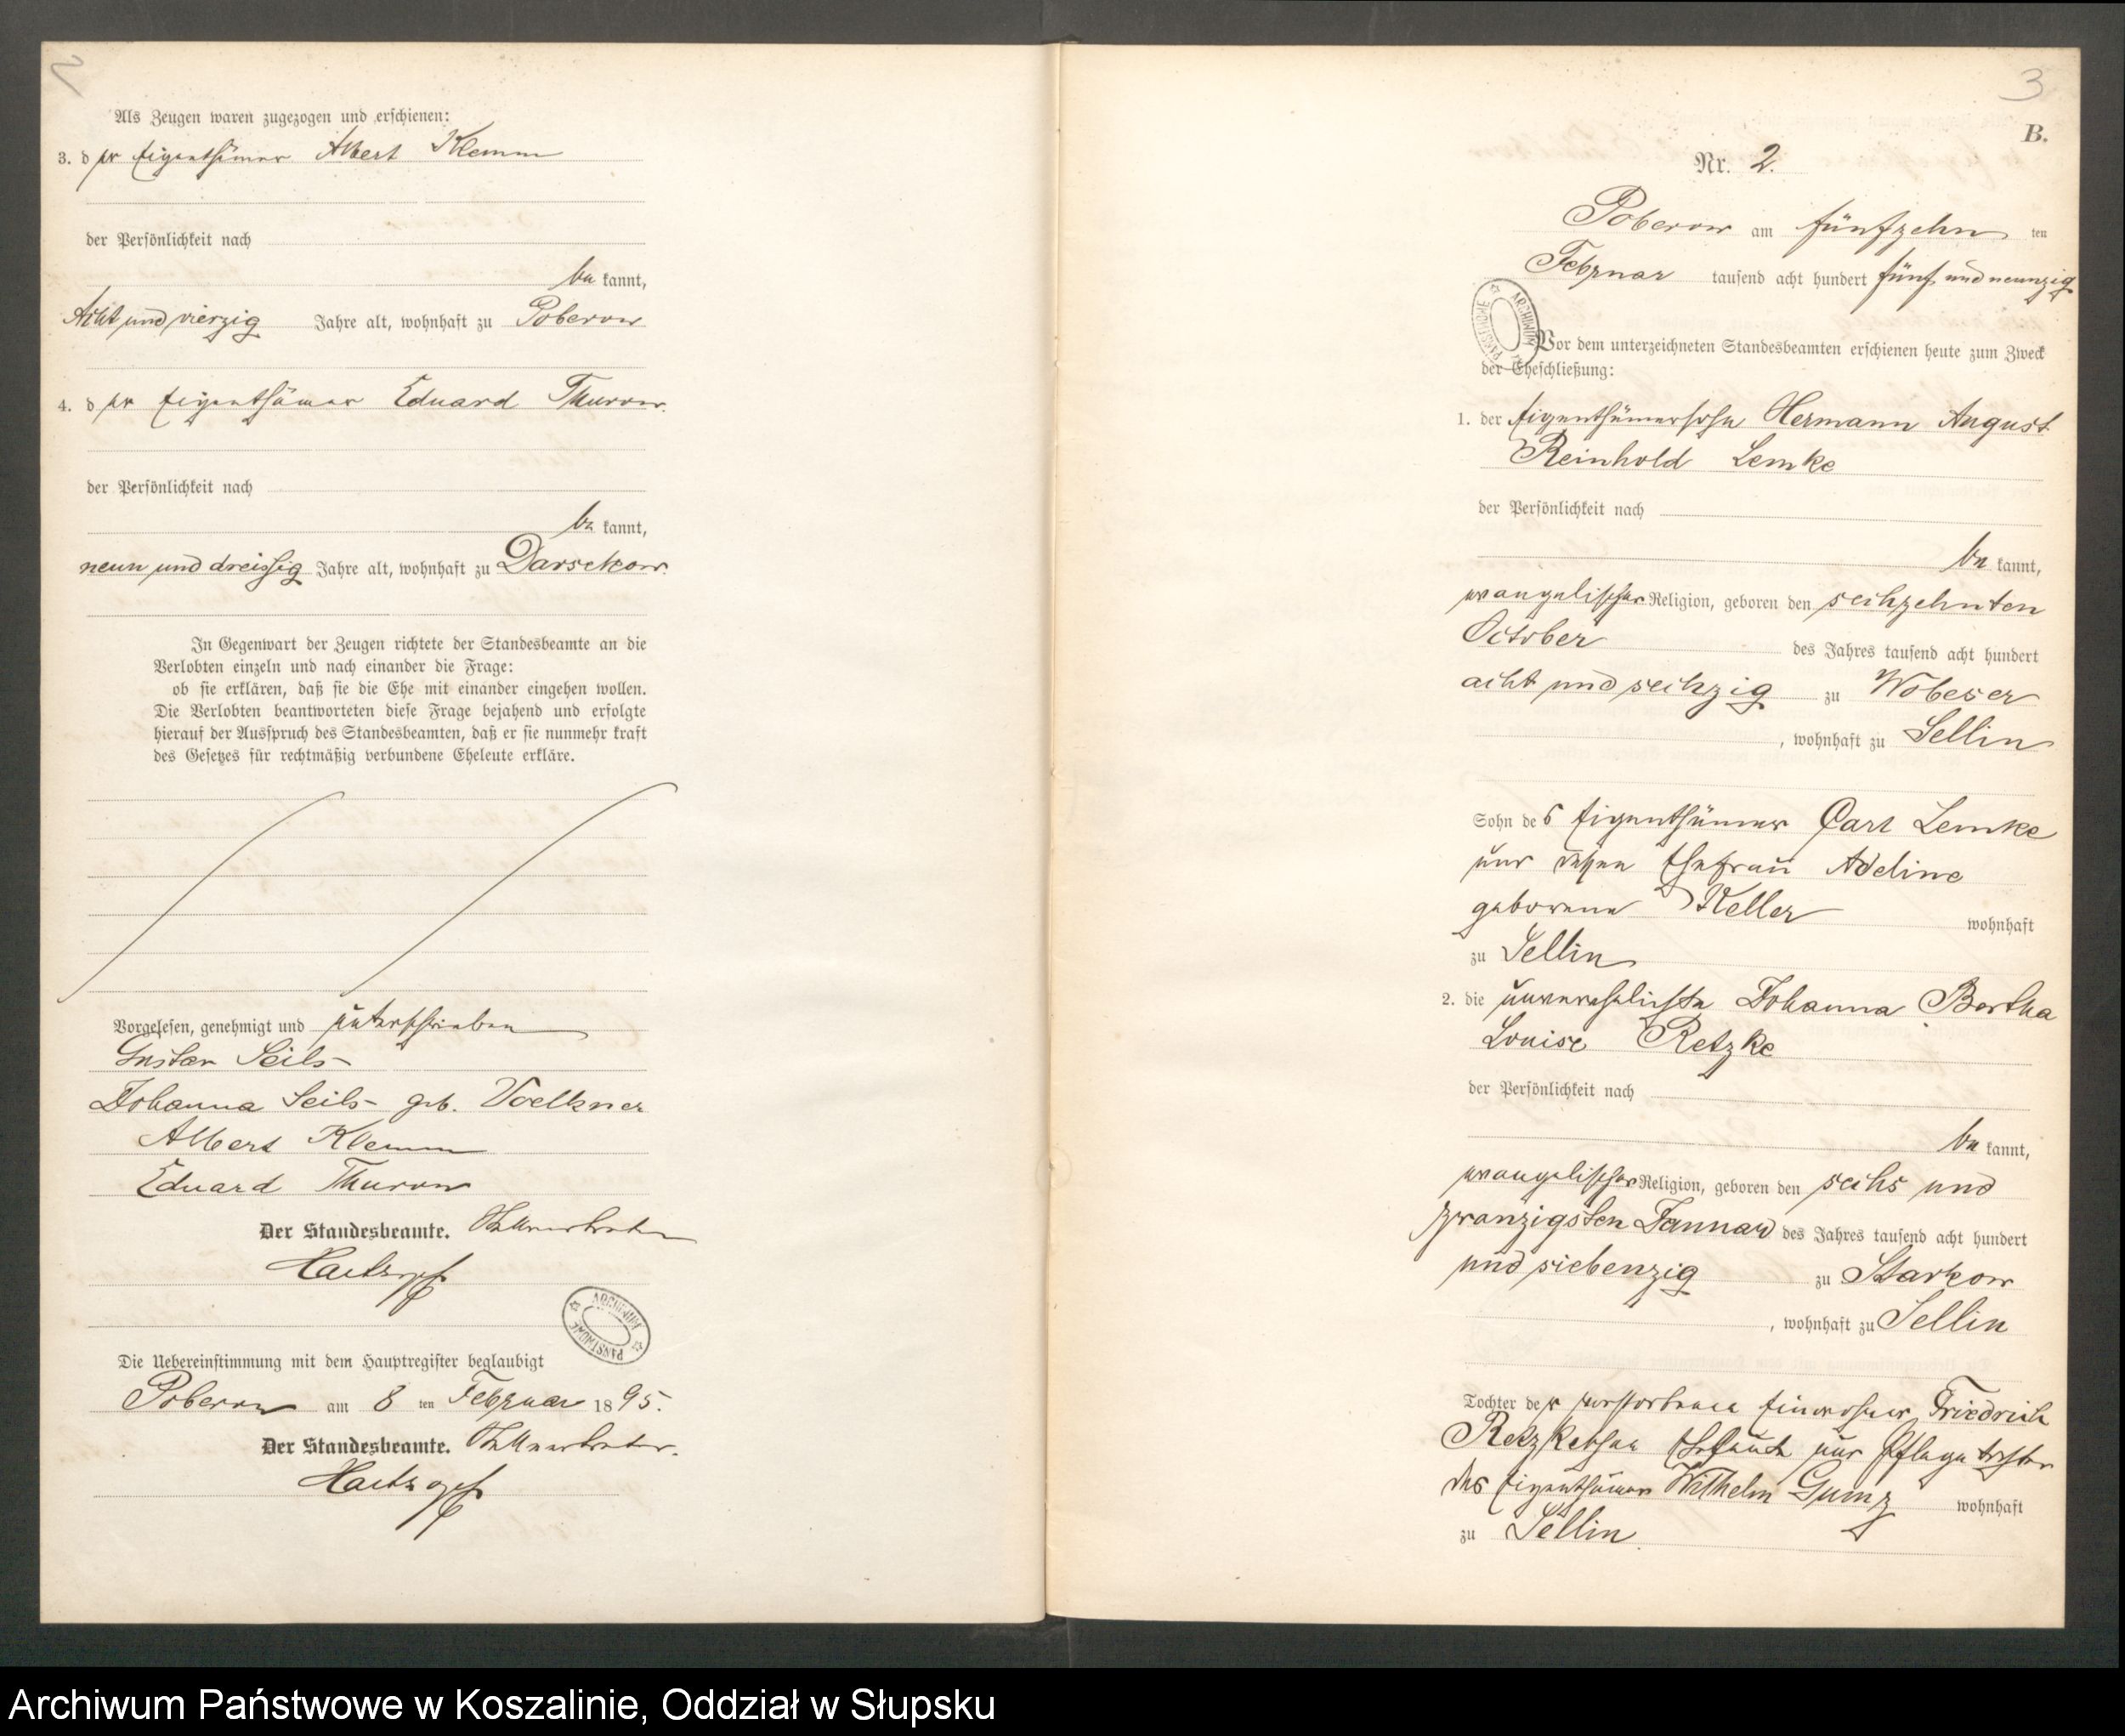 2
Als Zeugen waren zugezogen und erschienen:
3. der Eigenthümer Albert Klemm
der Persönlichkeit nach
be kannt,
Acht und vierzig Jahre alt, wohnhaft zu Poberow
4. der Eigenthümer Eduard Thurow
der Persönlichkeit nach
be kannt,
neun und dreissig Jahre alt, wohnhaft zu Darsekow.
In Gegenwart der Zeugen richtete der Standesbeamte an die
Verlobten einzeln und nach einander die Frage:
ob sie erklären, daß sie die Ehe mit einander eingehen wollen.
Die Verlobten beantworteten diese Frage bejahend und erfolgte
hierauf der Ausspruch des Standesbeamten, daß er sie nunmehr kraft
des Gesetzes für rechtmäßig verbundene Eheleute erkläre.
Vorgelesen, genehmigt und unterschrieben
Gustav Seils
Johanna Seils geb. Voelkner
Albert Klemm
Eduard Thurow
Der Standesbeamte. Stellvertreter
ARCHIWUM PAŃSTWOWE
Die Uebereinstimmung mit dem Hauptregister beglaubigt
Poberow am 8 ten Februar 1895.
Der Standesbeamte. Stellvertreter.
3
B.
Nr. 2.
Poberow am fünfzehn ten
Februar tausend acht hundert fünf und neunzig
ARCHIWUM PAŃSTWOWE
Vor dem unterzeichneten Standesbeamten erschienen heute zum Zweck
der Eheschließung:
1. der Eigenthümersohn Hermann August
Reinhold Lemke
der Persönlichkeit nach
be kannt,
evangelischer Religion, geboren den sechzehnten
October des Jahres tausend acht hundert
acht und sechzig zu Wobeser
, wohnhaft zu Sellin
Sohn des Eigenthümer Carl Lemke
und dessen Ehefrau Adeline
geborene Keller wohnhaft
zu Sellin
2. die unverehelichte Johanna Bertha
Louise Retzke
der Persönlichkeit nach
be kannt,
evangelischer Religion, geboren den sechs und
zwanzigsten Januar des Jahres tausend acht hundert
und siebenzig zu Starkow
, wohnhaft zu Sellin
Tochter der verstorbenen Einwohner Friedrich
Retzkeschen Eheleute und Pflegetochter
des Eigenthümer Wilhelm Gumz wohnhaft
zu Sellin.
Archiwum Państwowe w Koszalinie, Oddział w Słupsku